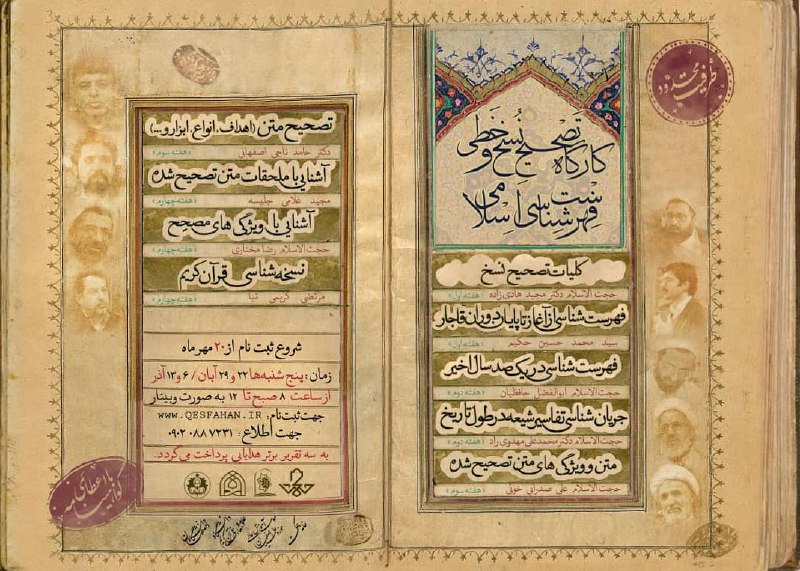 ظرفیت محدود
کارگاه تصحیح نسخ خطی و
فهرست شناسی اسلامی
کلیات تصحیح نسخ
حجت الاسلام دکتر مجید هادی زاده «هفته اول»
فهرست شناسی از آغاز تا پایان دوران قاجار
سید محمد حسین حکیم «هفته اول»
فهرست شناسی در یک صد سال اخیر
حجت الاسلام ابوالفضل حافظیان «هفته دوم»
جریان شناسی تفاسیر شیعه در طول تاریخ
حجت الاسلام دکتر محمدعلی مهدوی راد «هفته دوم»
متن و ویژگی های متن تصحیح شده
حجت الاسلام علی صدرایی خوئی «هفته سوم»
تصحیح متن (اهداف، انواع، ابزار و...)
دکتر حامد ناجی اصفهانی «هفته سوم»
آشنایی با ملحقات متن تصحیح شده
مجید غلامی جلیسه «هفته چهارم»
آشنایی با ویژگی های مصحح
حجت الاسلام رضا مختاری «هفته چهارم»
نسخه شناسی قرآن کریم
مرتضی کریمی نیا «هفته چهارم»
شروع ثبت نام از ۲۰ مهر ماه
زمان: پنج شنبه ها ۲۲ و ۲۹ آبان / ۶ و ۱۳ آذر
از ساعت ۸ صبح تا ۱۲ به صورت وبینار
جهت ثبت نام: WWW.QESFAHAN.IR
جهت اطلاع: ۰۹۰۲۰۸۸۷۲۳۱
به سه تقریر برتر هدایایی پرداخت می گردد.
با اعطای
گواهینامه